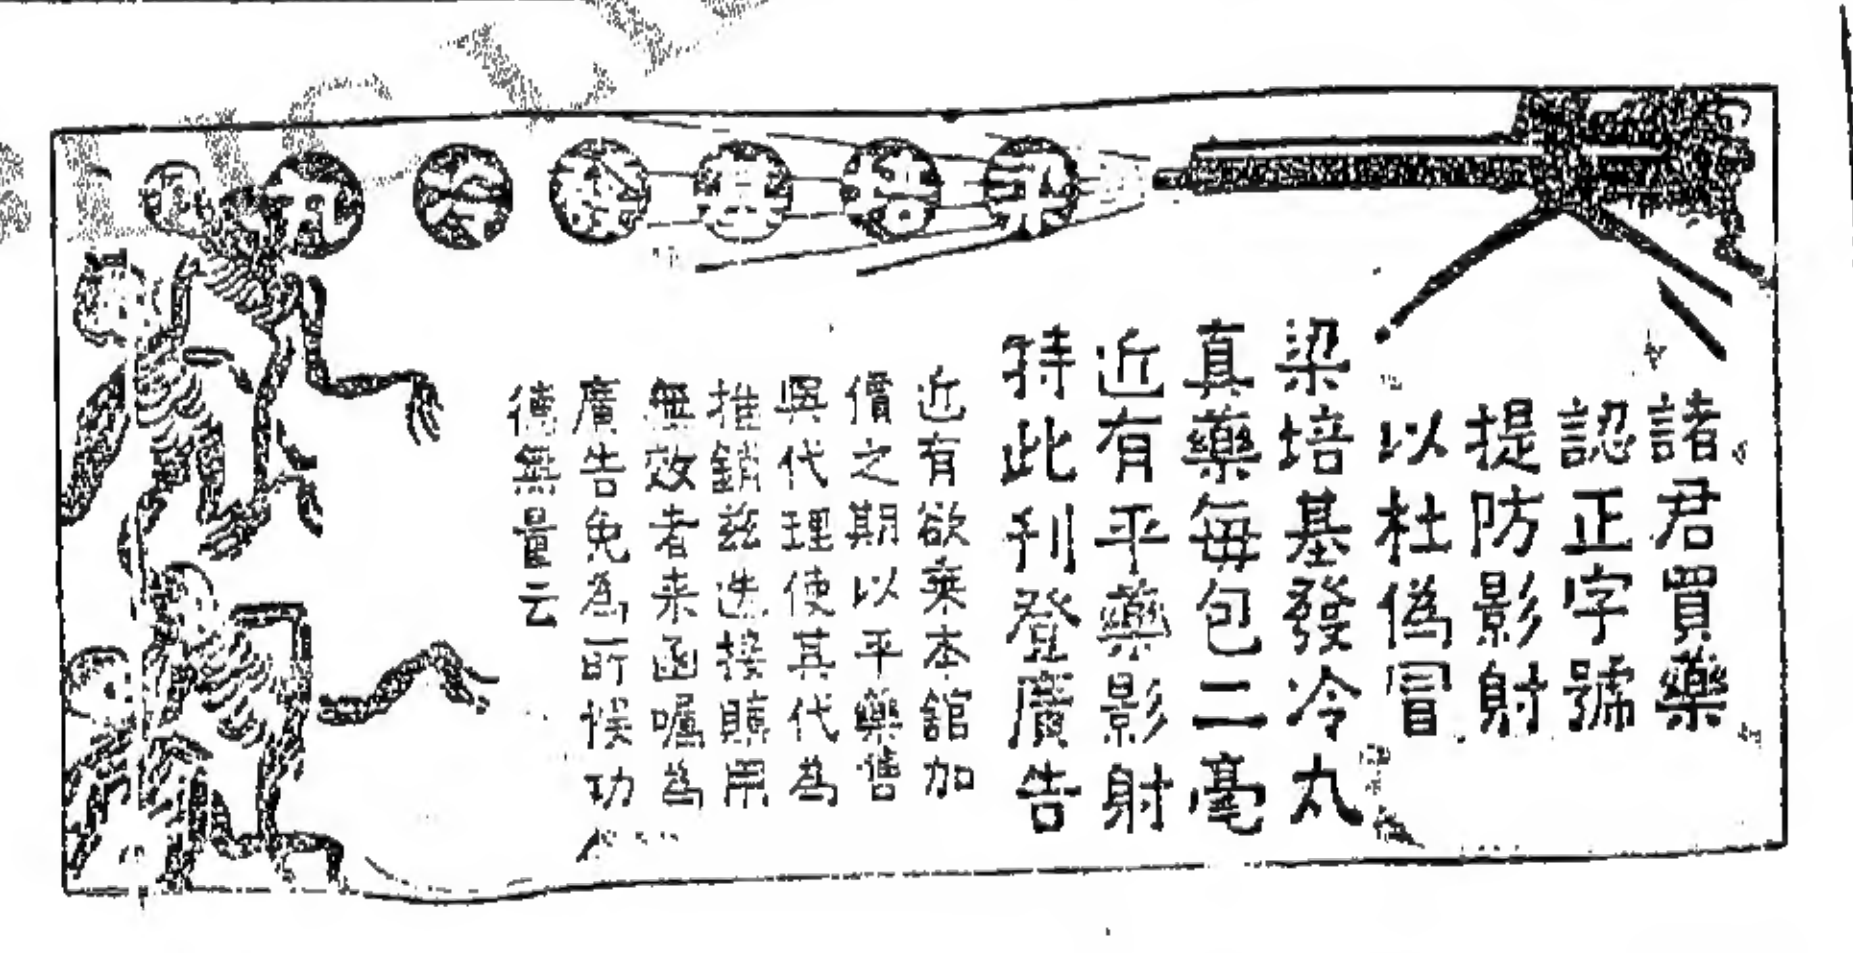 梁培基發冷丸
諸君買藥
認正字號
提防影射
以杜偽冒
梁培基發冷丸
真藥每包二毫
近有平藥影射
特此刊登廣告
近有欲乘本館加
價之期以平藥舊
與代理使其代為
推銷茲迭接購用
無效者來函囑為
廣告免為所悮功
德無量云